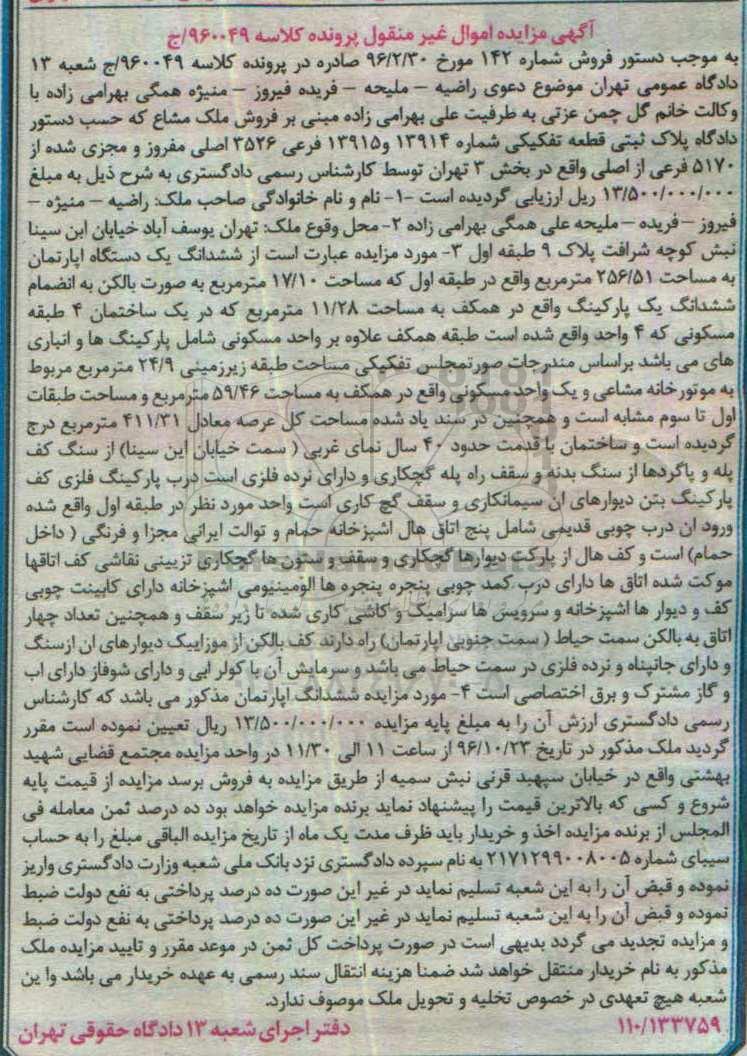 آگهی مزایده اموال غیر منقول پرونده کلاسه ۹۶۰۰۴۹/ج
به موجب دستور فروش شماره ۱۴۲ مورخ ۹۶/۲/۳۰ صادره در پرونده کلاسه ۹۶۰۰۴۹/ج شعبه ۱۳
دادگاه عمومی تهران موضوع دعوی راضیه – ملیحه – فریده فیروز – منیژه همگی بهرامی زاده با
وکالت خانم گل چمن عزتی به طرفیت علی بهرامی زاده مبنی بر فروش ملک مشاع که حسب دستور
دادگاه پلاک ثبتی قطعه تفکیکی شماره ۱۳۹۱۴ و۱۳۹۱۵ فرعی ۳۵۲۶ اصلی مفروز و مجزی شده از
۵۱۷۰ فرعی از اصلی واقع در بخش ۳ تهران توسط کارشناس رسمی دادگستری به شرح ذیل به مبلغ
۱۳/۵۰۰/۰۰۰/۰۰۰ ریل ارزیابی گردیده است -۱- نام و نام خانوادگی صاحب ملک: راضیه – منیژه –
فیروز – فریده – ملیحه علی همگی بهرامی زاده ۲- محل وقوع ملک: تهران یوسف آباد خیابان ابن سینا
نبش کوچه شرافت پلاک ۹ طبقه اول ۳- مورد مزایده عبارت است از ششدانگ یک دستگاه اپارتمان
به مساحت ۲۵۶/۵۱ مترمربع واقع در طبقه اول که مساحت ۱۷/۱۰ مترمربع به صورت بالکن به انضمام
ششدانگ یک پارکینگ واقع در همکف به مساحت ۱۱/۲۸ مترمربع که در یک ساختمان ۴ طبقه
مسکونی که ۴ واحد واقع شده است طبقه همکف علاوه بر واحد مسکونی شامل پارکینگ ها و انباری
های می باشد براساس مندرجات صورتمجلس تفکیکی مساحت طبقه زیرزمینی ۲۴/۹ مترمربع مربوط
به موتورخانه مشاعی و یک واحد مسکونی واقع در همکف به مساحت ۵۹/۴۶ مترمربع و مساحت طبقات
اول تا سوم مشابه است و همچنین در سند یاد شده مساحت کل عرصه معادل ۴۱۱/۳۱ مترمربع درج
گردیده است و ساختمان با قدمت حدود ۴۰ سال نمای غربی ( سمت خیابان این سینا) از سنگ کف
پله و پاگردها از سنگ بدنه و سقف راه پله گچکاری و دارای نرده فلزی است درب پارکینگ فلزی کف
پارکینگ بتن دیوارهای ان سیمانکاری و سقف گچ کاری است واحد مورد نظر در طبقه اول واقع شده
ورود ان درب چوبی قدیمی شامل پنج اتاق هال اشپزخانه حمام و توالت ایرانی مجزا و فرنگی ( داخل
حمام) است و کف هال از پارکت دیوارها گچکاری و سقف و ستون ها گچکاری تزیینی نقاشی کف اتاقها
موکت شده اتاق ها دارای درب کمد چوبی پنجره پنجره ها الومینیومی اشپزخانه دارای کابینت چوبی
کف و دیوار ها اشپزخانه و سرویس ها سرامیک و کاشی کاری شده تا زیر سقف و همچنین تعداد چهار
اتاق به بالکن سمت حیاط ( سمت جنوبی اپارتمان) راه دارند کف بالکن از موزاییک دیوارهای ان ازسنگ
و دارای جانپناه و نرده فلزی در سمت حیاط می باشد و سرمایش آن با کولر ابی و دارای شوفاز دارای اب
و گاز مشترک و برق اختصاصی است ۴- مورد مزایده ششدانگ اپارتمان مذکور می باشد که کارشناس
رسمی دادگستری ارزش آن را به مبلغ پایه مزایده ۱۳/۵۰۰/۰۰۰/۰۰۰ ریال تعیین نموده است مقرر
گردید ملک مذکور در تاریخ ۹۶/۱۰/۲۳ از ساعت ۱۱ الی ۱۱/۳۰ در واحد مزایده مجتمع قضایی شهید
بهشتی واقع در خیابان سپهبد قرنی نبش سمیه از طریق مزایده به فروش برسد مزایده از قیمت پایه
شروع و کسی که بالاترین قیمت را پیشنهاد نماید برنده مزایده خواهد بود ده درصد ثمن معامله فی
المجلس از برنده مزایده اخذ و خریدار باید ظرف مدت یک ماه از تاریخ مزایده الباقی مبلغ را به حساب
سیبای شماره ۲۱۷۱۲۹۹۰۰۸۰۰۵ به نام سپرده دادگستری نزد بانک ملی شعبه وزارت دادگستری واریز
نموده و قبض آن را به این شعبه تسلیم نماید در غیر این صورت ده درصد پرداختی به نفع دولت ضبط
نموده و قبض آن را به این شعبه تسلیم نماید در غیر این صورت ده درصد پرداختی به نفع دولت ضبط
و مزایده تجدید می گردد بدیهی است در صورت پرداخت کل ثمن در موعد مقرر و تایید مزایده ملک
مذکور به نام خریدار منتقل خواهد شد ضمنا هزینه انتقال سند رسمی به عهده خریدار می باشد وا ین
شعبه هیچ تعهدی در خصوص تخلیه و تحویل ملک موصوف ندارد.
۱۱۰/۱۳۳۷۵۹ دفتر اجرای شعبه ۱۳ دادگاه حقوقی تهران